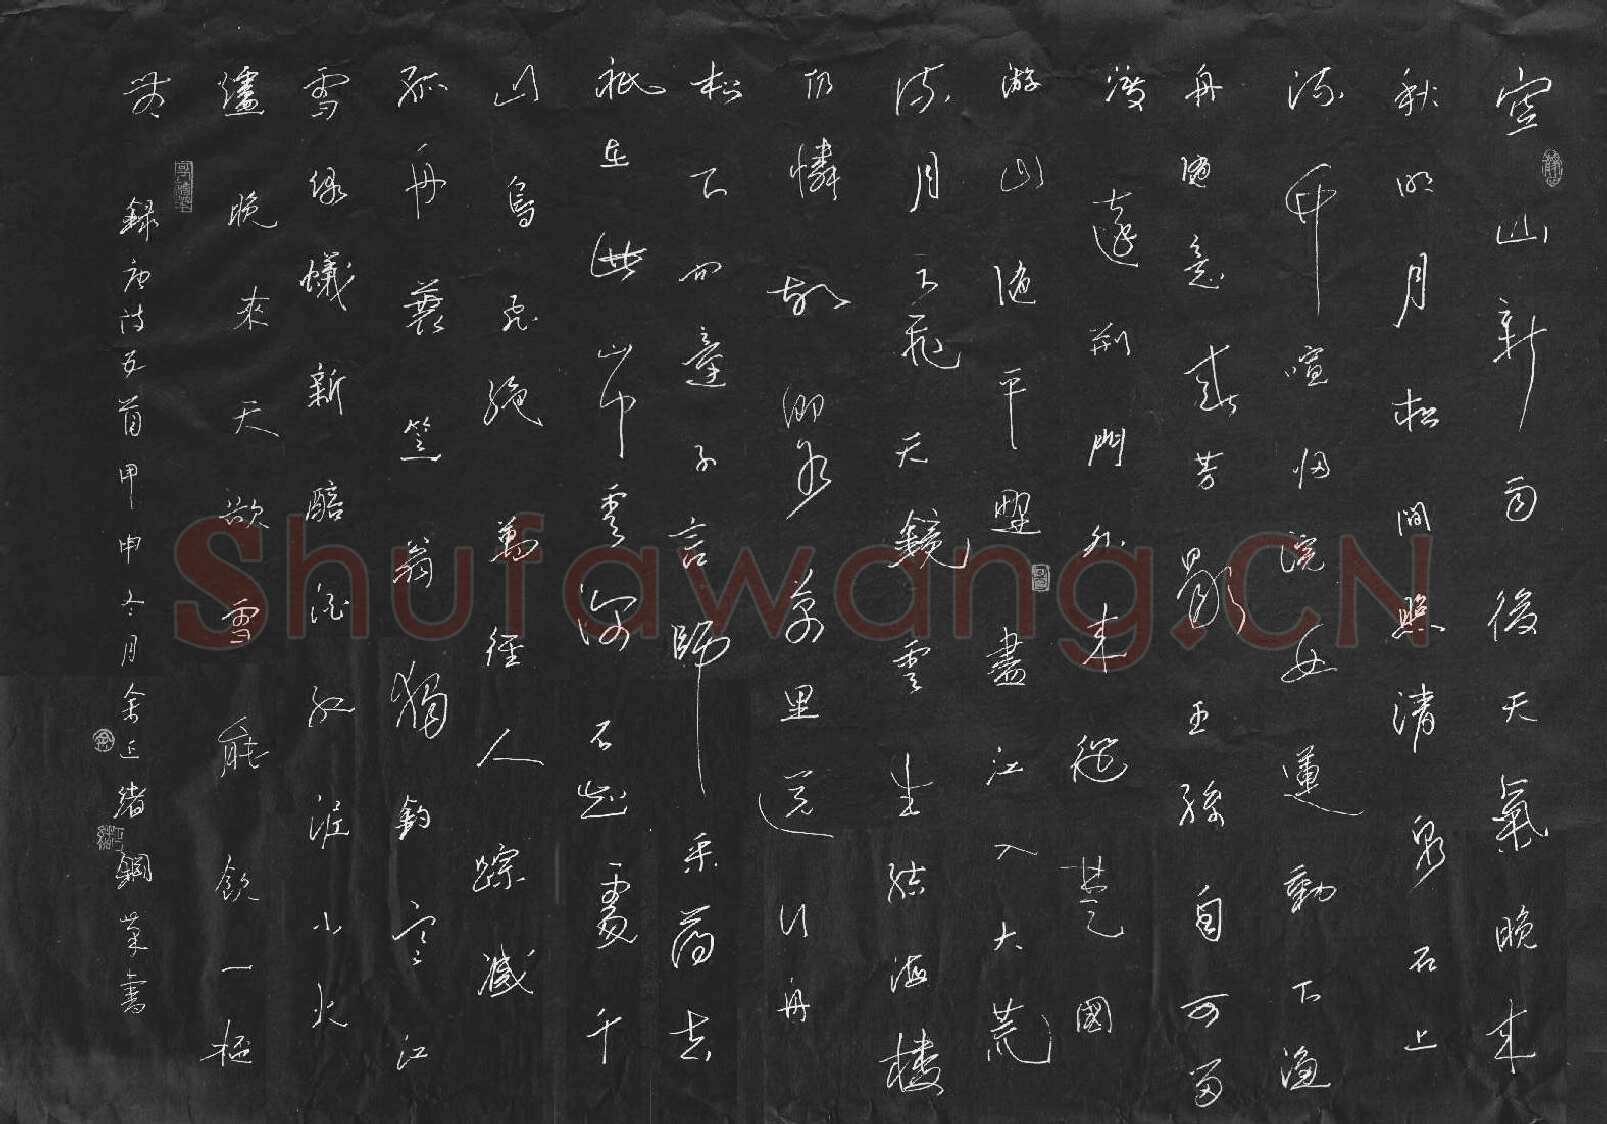 空山新雨後天氣晚來
秋明月松間照清泉石上
流竹喧歸浣女蓮動下漁
舟隨意春芳歇王孫自可留
渡遠荊門外來從楚國
游山隨平野盡江入大荒
流月下飛天鏡雲生結海樓
仍憐故鄉水萬里送行舟
松下問童子言師采藥去
祇在此山中雲深不知處千
山鳥飛絕萬徑人踪滅
孤舟蓑笠翁獨釣寒江
雪綠蟻新醅酒紅泥小火
爐晚來天欲雪能飲一杯
無
錄唐詩五首甲申冬月余正緒鋼筆書
Shufawang.CN